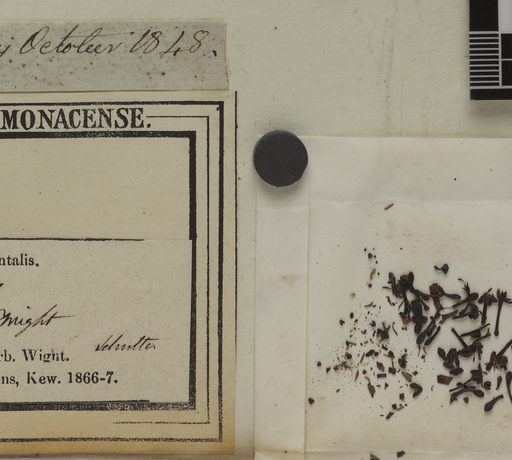 October 1848.
MONACENSE.
ntalis.
Wight
rb. Wight.
ns, Kew. 1866-7.